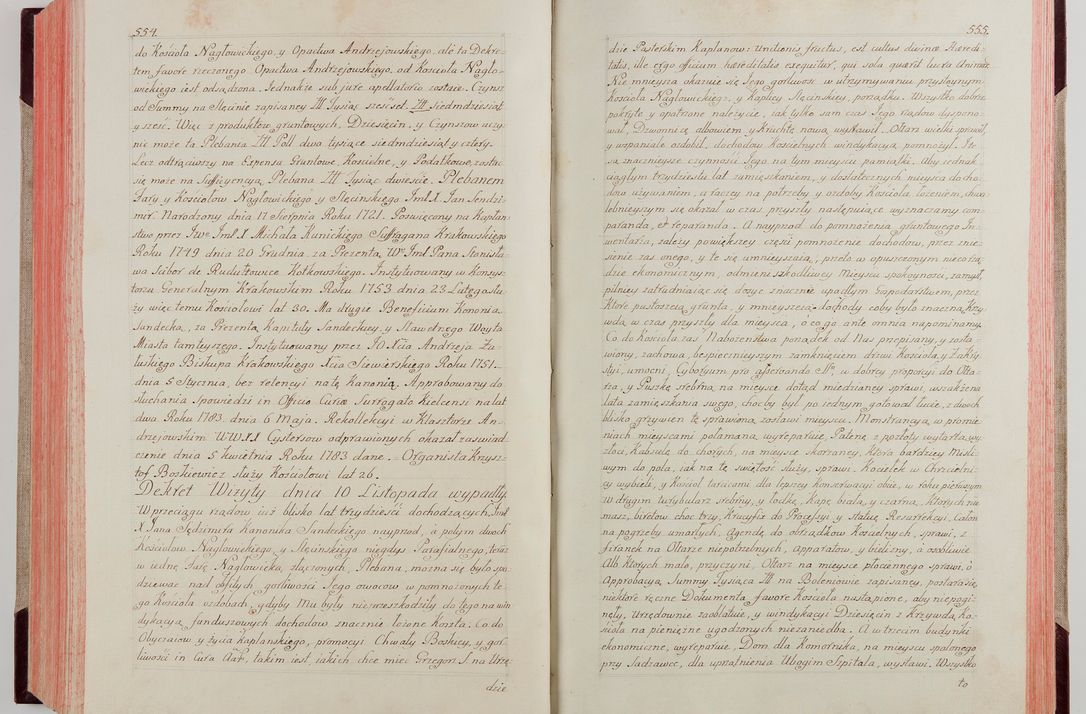 554.
do Kościoła Nagłowickiego, y Opactwa Andrzejowskiego, ale ta Dekre-
tem favore rzeczonego Opactwa Andrzejowskiego, od Kosciola Nagło-
wickiego iest odsądzona. Jednakże sub jure apellatorio zostaie. Czynsz
od Summy na Slęcinie zapisaney Zlł Tysiąc szescset Zlł Siedmdziesiąt
y szesc. Więc z produktow gruntowych, Dziesięcin, y Czynszow uczy-
nic może ta Plebania Zlł Poll dwa tysiące siedmdziesiąt y cztery.
Lecz odtrąciwszy na Expensa Gruntowe, Kościelne, y Podatkowe, zostac
się może na Sufficyencyą Plebana Zlł Tysiąc dwieście. Plebanem
Fary, y Kosciołow Nagłowickiego y Slęcinskiego Jmć X. Jan Sendzi-
mir. Narodzony dnia 17 Sierpnia Roku 1721. Poswięcony na Kapłan-
stwo przez JWo Jmć X Michała Kunickiego Suffragana Krakowskiego
Roku 1749 dnia 20 Grudnia, za Prezentą Wo Jmć Pana Stanisła-
wa Scibor de Rudułtowice Kotkowskiego. Instytuowany w Konsys-
torzu Generalnym Krakowskim Roku 1753 dnia 23 Lutego słu-
ży więc temu Kościołowi lat 30. Ma drugie Beneficium Kononia
Sandecka, za Prezentą Kapituły Sandeckiey, y Sławetnego Woyta
Miasta tamteyszego. Instytuowany przez JO Xcia Andrzeja Za-
łuskiego Biskupa Krakowskiego Xcia Siewierskiego Roku 1751.
dnia 5 Stycznia, bez relencyi na tę Kanonią. Approbowany do
słuchania Spowiedzi in Officio Curiæ Surrogato Kielcensi na lat
dwa Roku 1783 dnia 6 Maja. Rekollekcyi w Klasztorze An-
drzejowskim WW.X.X Cystersow odprawionych okazał zaswiad-
czenie dnia 5 kwietnia Roku 1783 dane. Organista Krysz-
tof Boskiewicz służy Kościołowi lat 26.
Dekret Wizyty dnia 10 Listopada wypadły.
W przeciągu rządow iuż blisko lat trzydzieści dochodzących, Jmć
X Jana Sędzimira Kanonika Sandeckiego nayprod, a potym dwoch
Kościołow Nagłowickiego, y Slęcinskiego niegdys Parafialnego, teraz
w iednę Farę Nagłowicką złączonych, Plebana, można się było spo-
dziewac nad obfitych, gorliwości Jego owocow w pomnożonych te-
go Kościoła ozdobach, gdyby Mu były nieprzeszkodziły do tego na win-
dykacyą funduszowych dochodow znacznie łożone Koszta. Co do
Obyczaiow, y życia Kapłanskiego, promocyi Chwały Boskiey, y gor-
liwości in Cura Aäf, takim iest, iakich chce miec Grzegorz S. na Urzę-
dzie
555.
dzie Pasterskim Kapłanow: Unctionis fructus, est cultus divinæ Hæredi-
tatis, ille ergo officium hæreditatis exequitur, qui sola quærit lucra Animæ.
Nie mnieysza okazuie się Jego gorliwosc w utrzymywaniu przystoynym
Kościoła Nagłowickiego, y Kaplicy Slęcinskiey, porządku. Wszystko dobrze
pokryte y opatrzone należycie, iak tylko sam czas Jego rządow dyspono-
wał, Dzwonnicę albowiem, y kruchtę nową wystawił, Ołtarz wielki sprawił,
y wspaniale ozdobił, dochodow Kościelnych windykacyą pomnożył. Te
są znacznieysze czynności Jego na tym mieyscu pamiątki. Aby iednak
ciągłym trzydziestu lat zamieszkaniem, y dostatecznych mieysca docho-
dow używaniem, a raczey na potrzeby y ozdoby Kościoła łożeniem, chwa-
lebnieyszym się okazał w czas przyszły następuiące wyznaczamy com-
paranda, et reparanda. A nayprod do pomnożenia gruntowego In-
wentarza, zależy powiększey części pomnożenie dochodow, przez znie-
sienie zas onego, y te się umnieyszaią, przeto w opuszczonym niecożą-
dzie ekonomicznym, odmieni szkodliwey Mieyscu spokoyności, zamysł,
pilniey zatrudniaiąc się dosyc znacznie upadłym Gospodarstwem, przez
Ktore pustoszeią grunta, y mnieyszeią dochody coby było znaczną Krzy-
wdą w czas przyszły dla mieysca, o co go ante omnia napominamy.
Co do Kościoła zas Nabożenstwa porządek od Nas przepisany, y zosta-
wiony, zachowa, bezpiecznieyszym zamknięciem drzwi Kościoła y Zakry-
styi, umocni, Cyboryum pro asservando Smo, w dobrey proporcyi do Ołta-
rza, y Puszkę srebrną na mieysce dotąd miedzianey sprawi, wszakże na
lata zamieszkania swego, choćby był po iednym gotował łucie, z dwoch
blisko grzywien tę sprawioną zostawi mieyscu. Monstrancyą w promie-
niach mieyscami połamaną wyreparuie, Patenę z pozłoty wytartą, wy-
złoci, Kapsułę do chorych, na mieysce skorzaney, Ktora bardziey Mszli-
wym do pola, iak na tę swiętość służy, sprawi. Kociełek w Chrzcielni-
cy wybieli, y Kościoł tarcicami dla lepszey Konserwacyi obije, w roku pierwszym
W drugim turybularz srebrny, y łodkę, Kapę białą, y czarną, Ktorych nie
masz, biretow choc trzy, Krucyfix do Processyi, y statuę Resurrekcyi, Całon
na pogrzeby umarłych, Agendę do obrządkow Koscielnych, sprawi, z
firanek na Ołtarze niepotrzebnych, apparatow, y bielizny, a osobliwie
Alb, Ktorych mało, przyczyni, Ołtarz na mieysce płociennego sprawi, o
Approbacyą Summy Tysiąca Zlł na Boleniowie zapisaney, postara się,
niektore ręczne Dokumenta favore Kościoła nastąpione, aby niepogi-
nęły, Urzędownie zoblatuie, y windykacyi Dziesięcin z Krzywdą Ko-
ściola na pienęzne ugodzonych niezaniedba. A w trzecim budynki
ekonomiczne, wyreparuie, Dom dla Komornika, na mieyscu spalonego
przy Sadzawce, dla uprzątnienia Ubogim Szpitala, wystawi. Wszystko
to